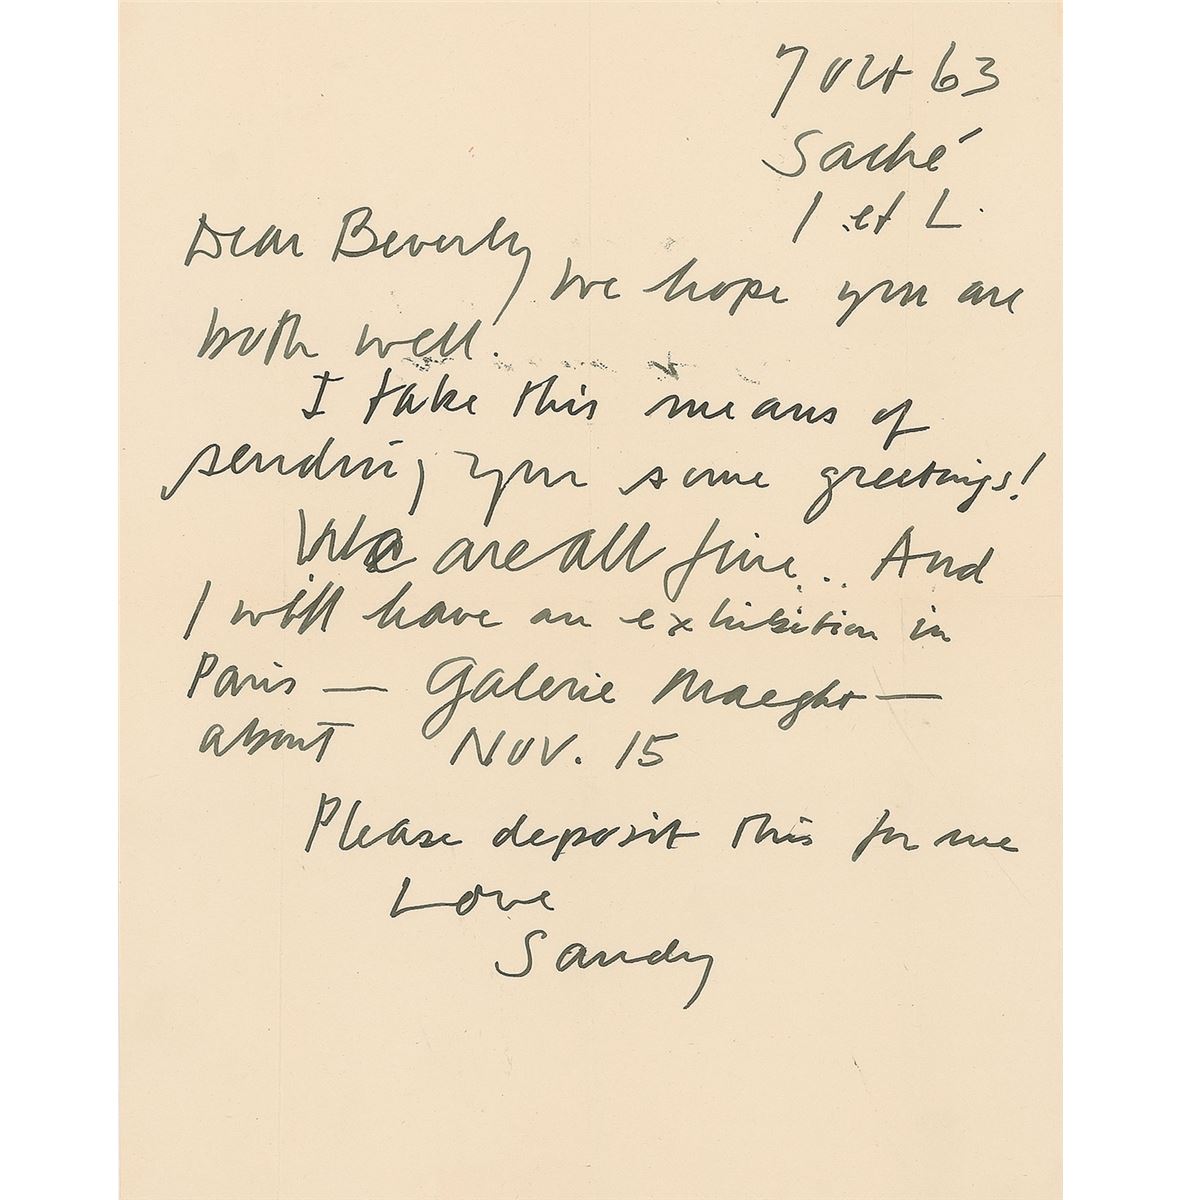 7 Oct 63
Saché
I et L.
Dear Beverly
We hope you are
both well.
I take this means of
sending you some greetings!
We are all fine... And
I will have an exhibition in
Paris — Galerie Maeght —
about Nov. 15
Please deposit this for me
Love
Sandy